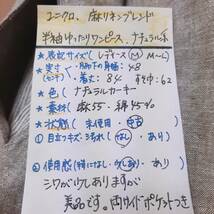 ユニクロ、麻リネンブレンド
半袖ゆったりワンピース、ナチュラル
★表記サイズ(レディース(M) M〜L)
★実寸・脇下の身幅:48
(センチ)・着丈:84 すそ巾:62
★色(ナチュラルカーキ)
★素材(麻55・綿45%)
★状態(未使用・中古)
①目立つキズ・汚れ(なし・あり)
②使用感(特になし・少しあり・あり)
シワがついてありますが
美品です。両サイドポケットつき